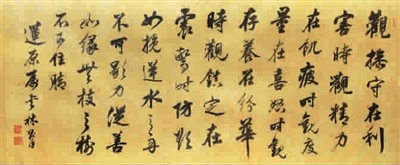 觀操守在利
害時觀精力
在飢疲時觀度
量在喜怒時觀
存養在紛華
時觀鎮定在
震驚時防欲
如挽逆水之舟
不可歇力從善
如緣無枝之樹
不可住腳